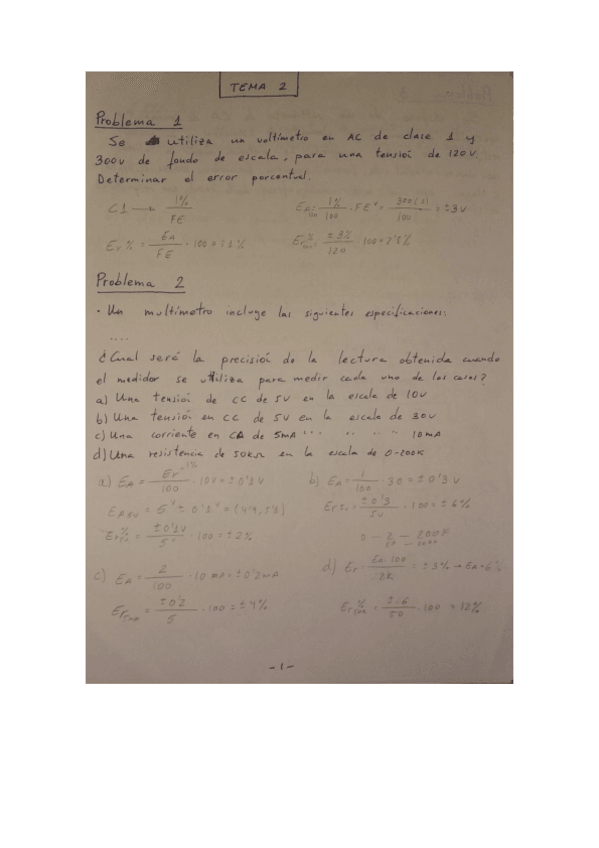 TEMA 2
Problema 1
Se utiliza un voltímetro en AC de clase 1 y
300V de fondo de escala, para una tensioń de 120V.
Determinar el error porcentual.
C1 → 1% / FE
E_A = 1% / 100 · FE = 300(1) / 100 = ± 3V
Er % = E_A / FE · 100 = ± 1%
Er % = ± 3% / 120 · 100 = 2'5%
Problema 2
· Un multímetro incluye las siguientes especificaciones:
....
¿Cual será la precisioń de la lectura obtenida cuando
el medidor se utiliza para medir cada uno de los casos?
a) Una tensioń de CC de 5V en la escala de 10V
b) Una tensioń en CC de 5V en la escala de 30V
c) Una corriente en CA de 5mA " " " " 10mA
d) Una resistencia de 50KΩ en la escala de 0-200K
a) E_A = Er 1% / 100 · 10V = ± 0'1V
b) E_A = 1 / 100 · 30 = ± 0'3 V
= 5V ± 0'1V = (4'9, 5'1)
= ± 0'3 / 5V · 100 = ± 6%
Er % = ± 0'1V / 5V · 100 = ± 2%
c) E_A = 2 / 100 · 10 mA = ± 0'2mA
d) Er = E_A · 100 / 2K = ± 3% → E_A = 6%
Er = ± 0'2 / 5 · 100 = ± 4%
Er % = ± 6 / 50 · 100 = 12%
- 1 -